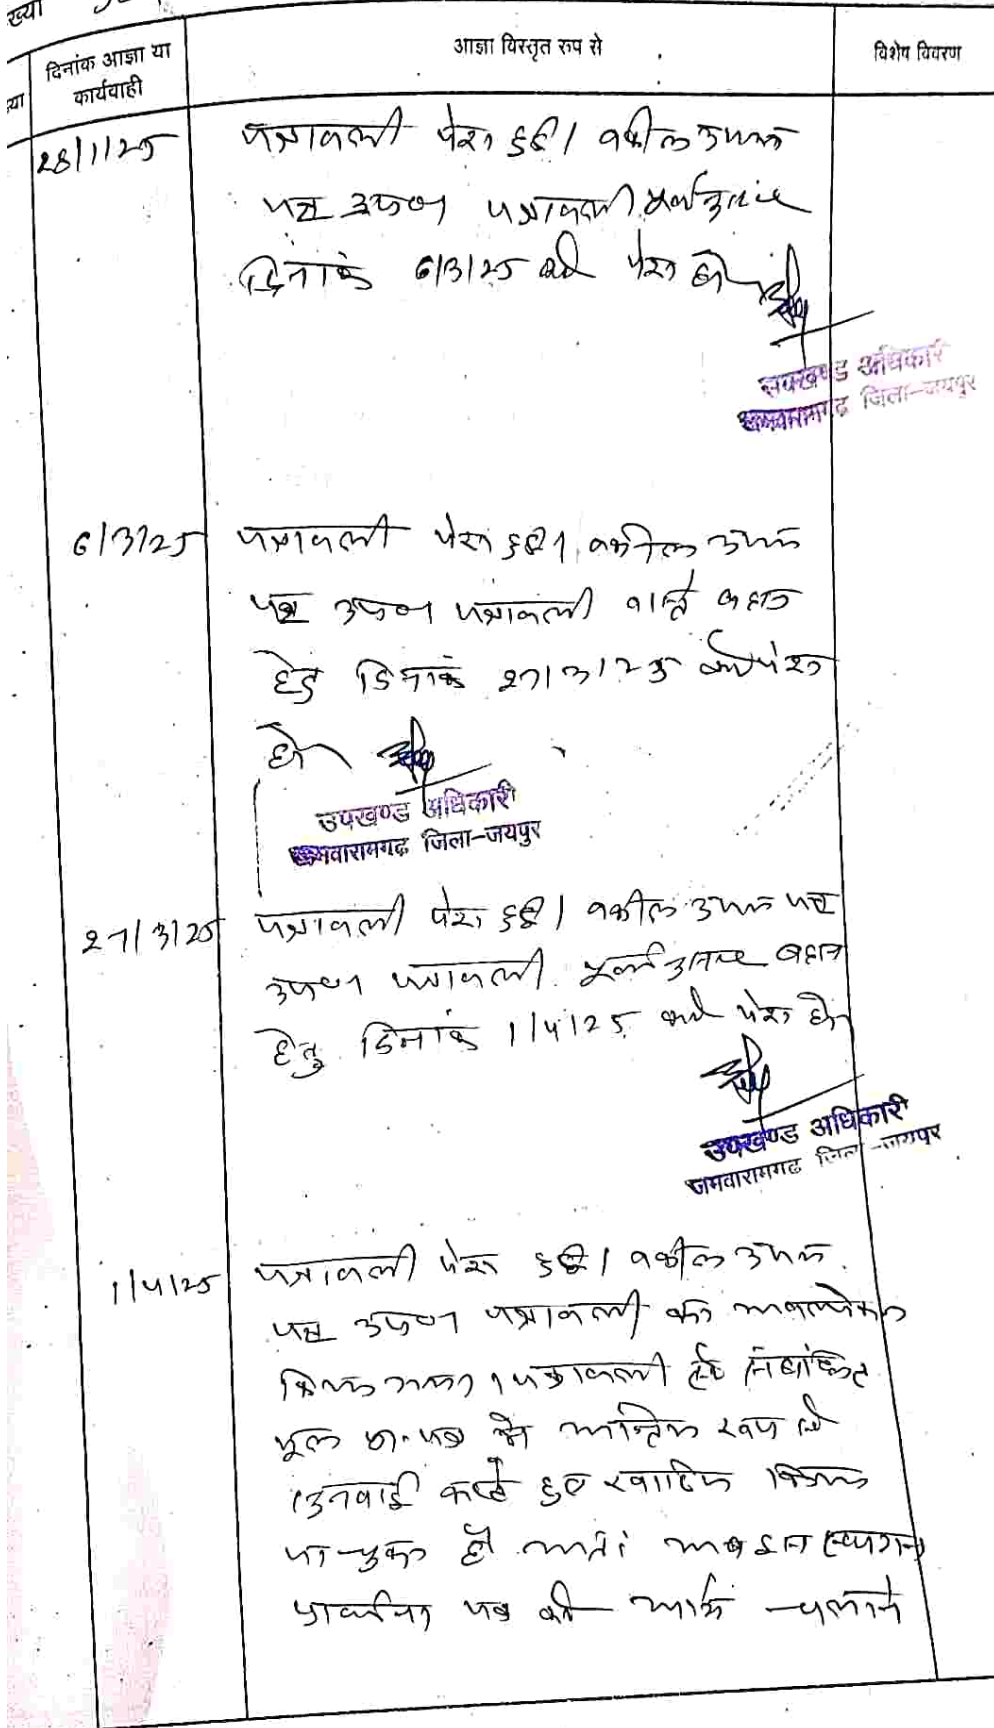 ख्या
दिनांक आज्ञा या
कार्यवाही
आज्ञा विस्तृत रुप से
विशेष विवरण
28/1/25
पत्रावली पेश हुई। वकील उभय
पक्ष उप० पत्रावली पूर्वानुसार
दिनांक 6/3/25 को पेश हो
उपखण्ड अधिकारी
जमवारामगढ़ जिला-जयपुर
6/3/25
पत्रावली पेश हुई। वकील उभय
पक्ष उप० पत्रावली वास्ते बहस
हेतु दिनांक 27/3/25 को पेश
हो
उपखण्ड अधिकारी
जमवारामगढ़ जिला-जयपुर
27/3/25
पत्रावली पेश हुई। वकील उभय पक्ष
उप० पत्रावली पूर्वानुसार बहस
हेतु दिनांक 1/4/25 को पेश हो
उपखण्ड अधिकारी
जमवारामगढ़ जिला-जयपुर
1/4/25
पत्रावली पेश हुई। वकील उभय
पक्ष उप० पत्रावली का अवलोकन
किया गया। पत्रावली से
मूल प्रा.पत्र में अन्तिम रूप से
सुनवाई करते हुए खारिज किया
जा चुका है अतः अब इस स्थगन
प्रार्थना पत्र को आगे चलाने